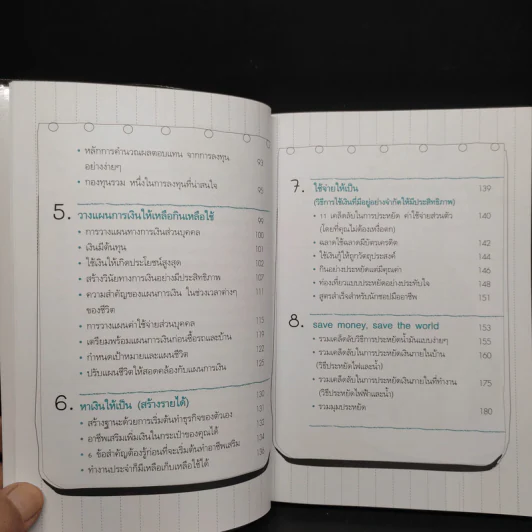 • หลักการคำนวณผลตอบแทน จากการลงทุน 93
อย่างง่ายๆ
• กองทุนรวม หนึ่งในการลงทุนที่น่าสนใจ 95
5. วางแผนการเงินให้เหลือกินเหลือใช้ 99
• การวางแผนทางการเงินส่วนบุคคล 100
• เงินมีต้นทุน 101
• ใช้เงินให้เกิดประโยชน์สูงสุด 102
• สร้างวินัยทางการเงินอย่างมีประสิทธิภาพ 107
• ความสำคัญของแผนการเงิน ในช่วงเวลาต่างๆ 111
ของชีวิต
• การวางแผนค่าใช้จ่ายส่วนบุคคล 113
• เตรียมพร้อมแผนการเงินก่อนซื้อรถและบ้าน 119
• กำหนดเป้าหมายและแผนชีวิต 122
• ปรับแผนชีวิตให้สอดคล้องกับแผนการเงิน 125
6. หาเงินให้เป็น (สร้างรายได้) 130
• สร้างฐานะด้วยการเริ่มต้นทำธุรกิจของตัวเอง 131
• อาชีพเสริมเพิ่มเงินในกระเป๋าของคุณได้ 132
• 6 ข้อสำคัญต้องรู้ก่อนที่จะเริ่มต้นทำอาชีพเสริม 134
• ทำงานประจำก็มีเหลือเก็บเหลือใช้ได้ 136
7. ใช้จ่ายให้เป็น 139
(วิธีการใช้เงินที่มีอยู่อย่างจำกัดให้มีประสิทธิภาพ)
• 11 เคล็ดลับในการประหยัด ค่าใช้จ่ายส่วนตัว 140
(โดยที่คุณไม่ต้องเหงื่อตก)
• ฉลาดใช้ฉลาดมีบัตรเครดิต 142
• ใช้เงินกู้ให้ถูกวัตถุประสงค์ 144
• กินอย่างประหยัดแต่มีคุณค่า 146
• ท่องเที่ยวแบบประหยัดอย่างประทับใจ 148
• สูตรสำเร็จสำหรับนักชอปมืออาชีพ 151
8. save money, save the world 153
• รวมเคล็ดลับวิธีการประหยัดน้ำมันแบบง่ายๆ 155
• รวมเคล็ดลับในการประหยัดเงินภายในบ้าน 160
(วิธีประหยัดไฟและน้ำ)
• รวมเคล็ดลับในการประหยัดเงินภายในที่ทำงาน 175
(วิธีประหยัดไฟฟ้าและน้ำ)
• รวมมุมประหยัด 180